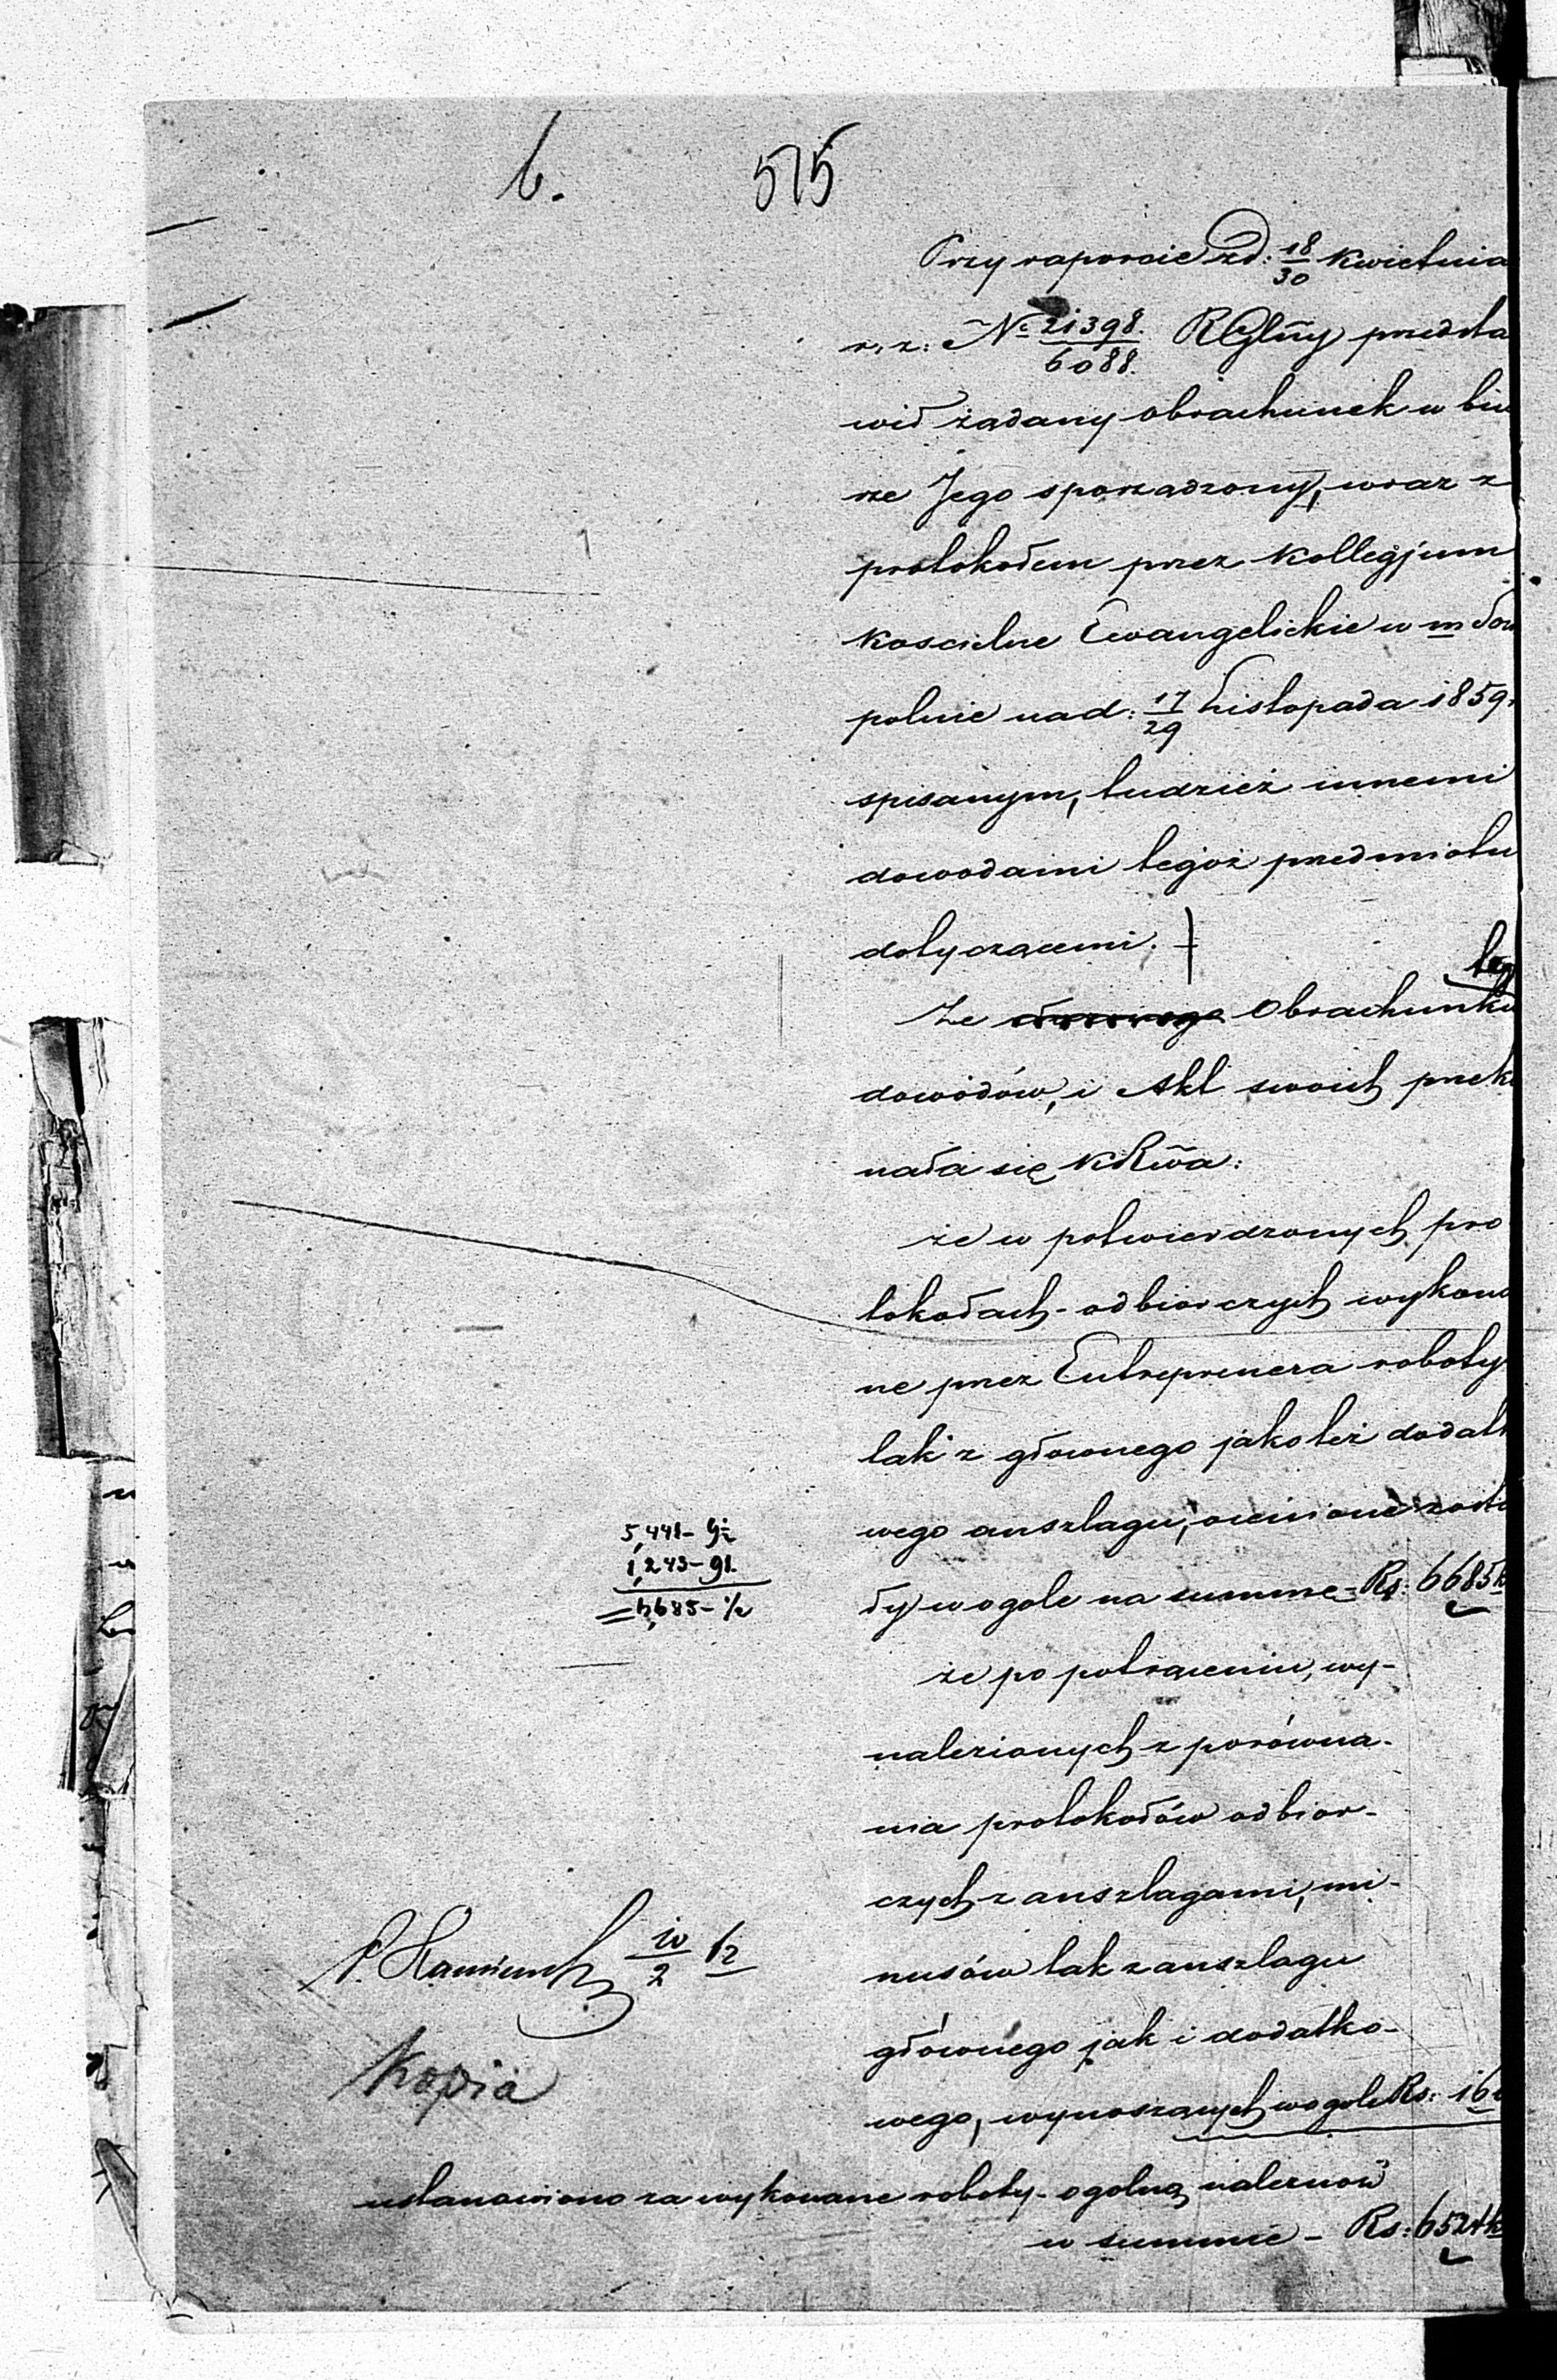 b. 515
Przy raporcie z d: 18/30 Kwietnia
r. z: № 21398./6088. RGlny przedsta
wił żądany obrachunek w biu
rze Jego sporządzony, wraz z
protokołem przez Kollegjum
Koscielne Ewangelickie w m
polnie na d: 17/29 Listopada 1859.
spisanym, tudzież innemi
dowodami tegoż przedmiotu
dotyczącemi.
Ze Obrachunku
dowodów, i Akt swoich przeko
nała się KRwa:
że w potwierdzonych pro
tokołach odbiorczych wykona
ne przez Entreprenera roboty
tak z głownego jako też dodatk
wego anszlagu, ocenione zosta
ły w ogole na summe Rs: 6685 k
5,441- 9½
1,243-91.
6,685-½
że po potrąceniu, wy-
nalezionych z porówna-
nia protokołów odbior-
czych z anszlagami, mi-
nusów tak z anszlagu
głównego jak i dodatko-
wego, wynoszących w ogole Rs: 16
10/2 62
Kopia
ustanowiono za wykonane roboty ogolną należnos
w summie - Rs: 6524 k